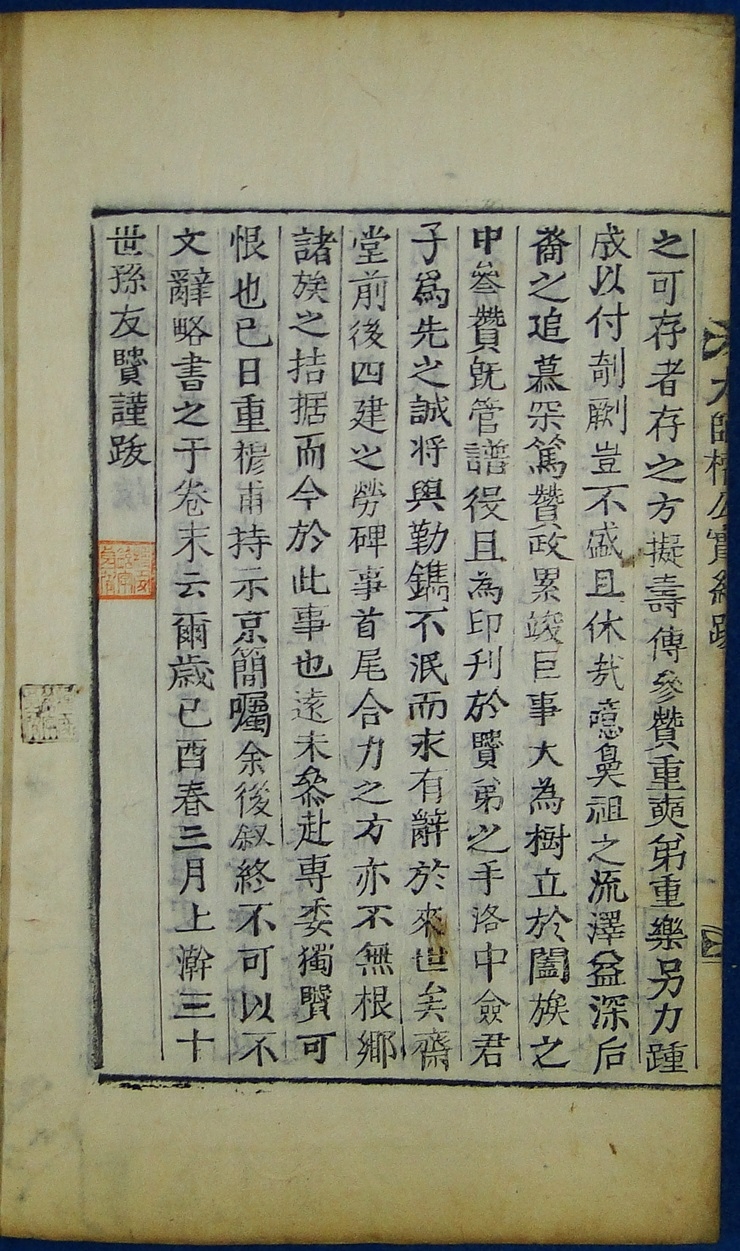 太師權公實紀跋
之可存者存之方擬壽傳參贊重奭弟重樂另力踵
成以付剞劂豈不盛且休哉噫鼻祖之流澤益深后
裔之追慕罙篤贊政累竣巨事大為樹立於闔族之
中參贊旣管譜役且為印刋於賢弟之手洛中僉君
子爲先之誠将與勒鐫不泯而永有辭於來世矣齋
堂前後四建之勞碑事首尾合力之方亦不無根鄉
諸族之拮据而今於此事也遠未叅赴専委獨賢可
恨也已日重禥甫持示京簡囑余後叙終不可以不
文辭略書之于卷末云爾歲己酉春三月上澣三十
世孫友賢謹跋